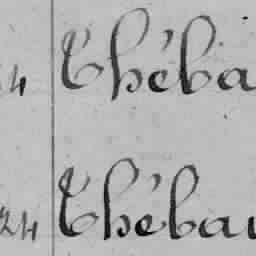 4 Théba
24 Thébau